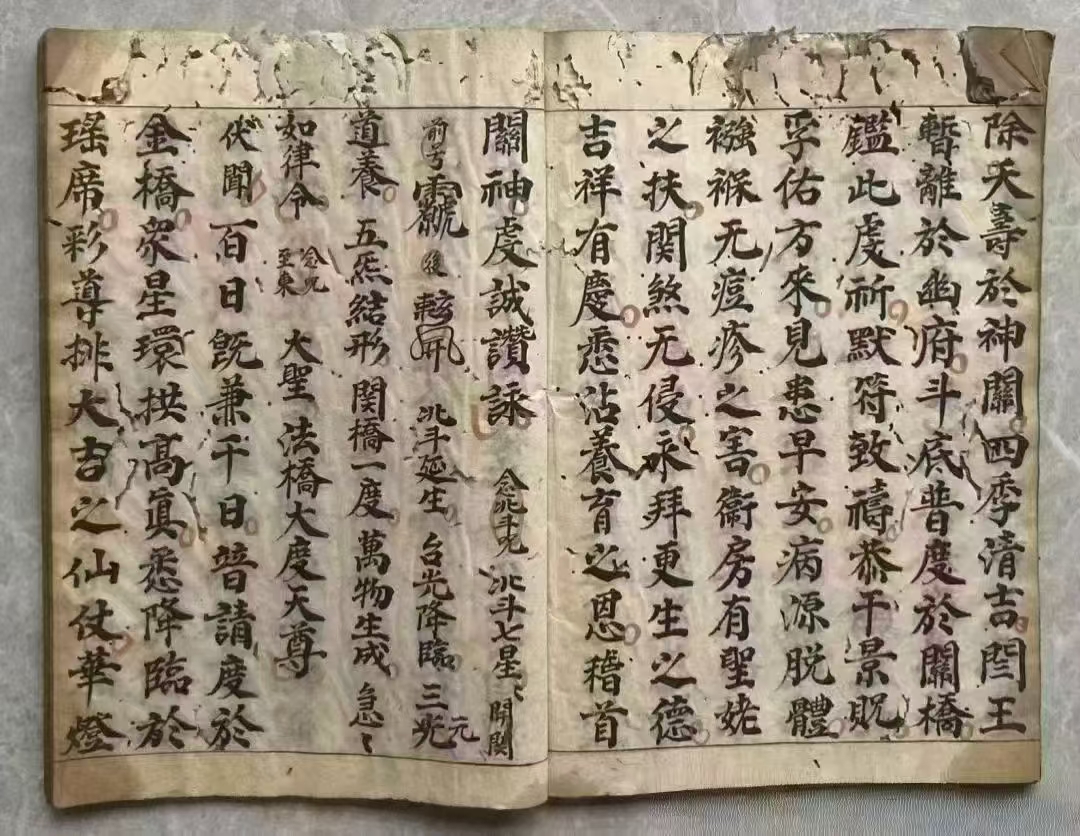 除夭壽於神關四季清吉閆王
暫離於幽府斗底普度於關橋
鑑此虔祈默符致禱恭干景貺
孚佑方來見患早安病源脱體
襁褓无痘疹之害衞房有聖姥
之扶関煞无侵永拜更生之德
吉祥有慶悉沾養育之恩稽首
關神虔誠讚詠 念北斗咒 北斗七星 開関
前号 後 北斗延生 台光降臨 三光元
道養 五炁結形 関橋一度 萬物生成 急〻
如律令 念咒至東 大聖法橋大度天尊
伏聞百日既兼千日普請度於
金橋眾星環拱高真悉降臨於
瑤席彩導排大吉之仙仗華燈